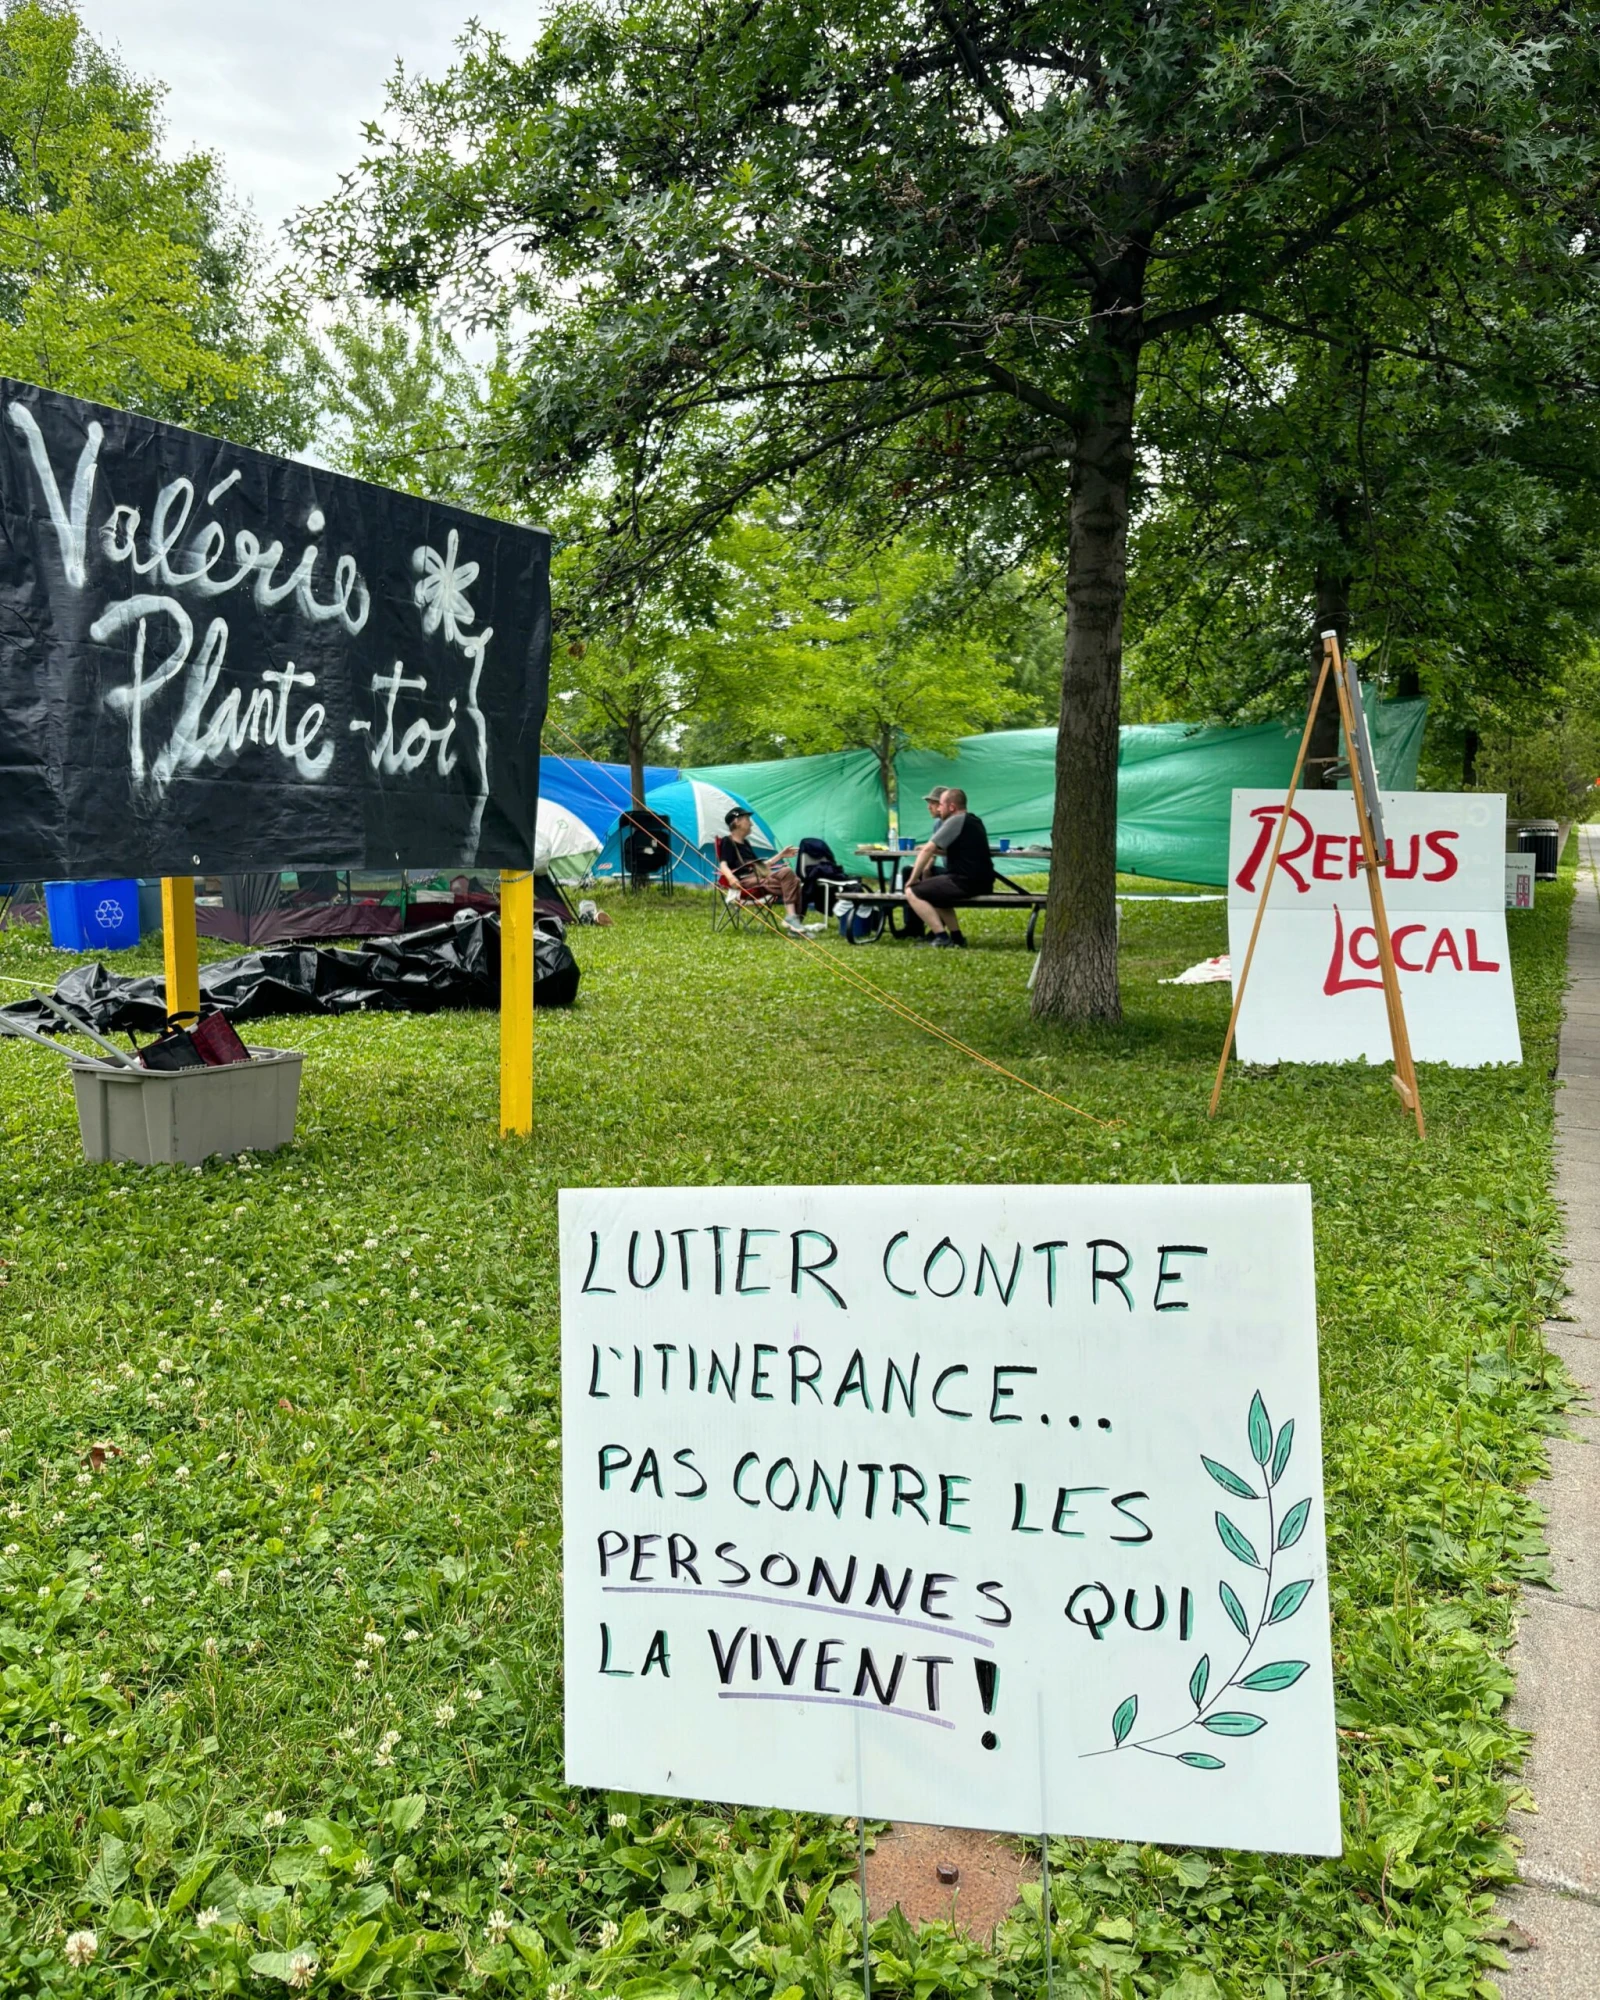 Valérie
Plante-toi
REFUS
LOCAL
LUTTER CONTRE
L'ITINERANCE...
PAS CONTRE LES
PERSONNES QUI
LA VIVENT!